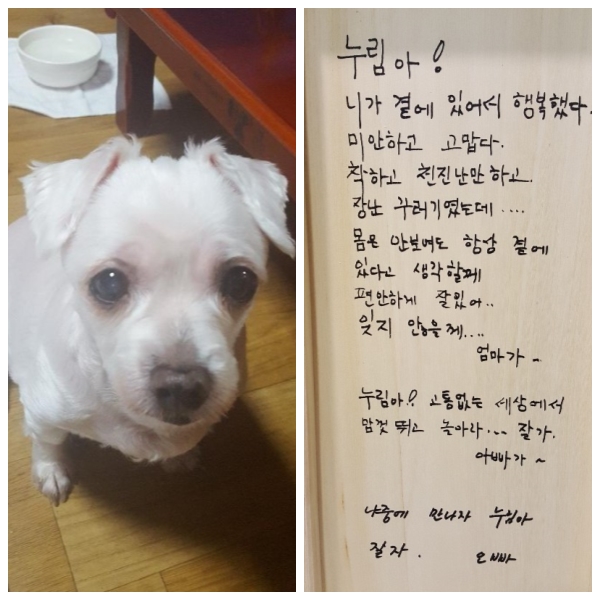 누림아!
니가 곁에 있어서 행복했다.
미안하고 고맙다.
착하고 천진난만하고.
장난 꾸러기였는데....
몸은 안보여도 항상 곁에
있다고 생각할께
편안하게 잘있어..
잊지 않을께....
엄마가~
누림아!! 고통없는 세상에서
맘껏 뛰고 놀아라... 잘가.
아빠가~
나중에 만나자 누림아
잘자. 오빠